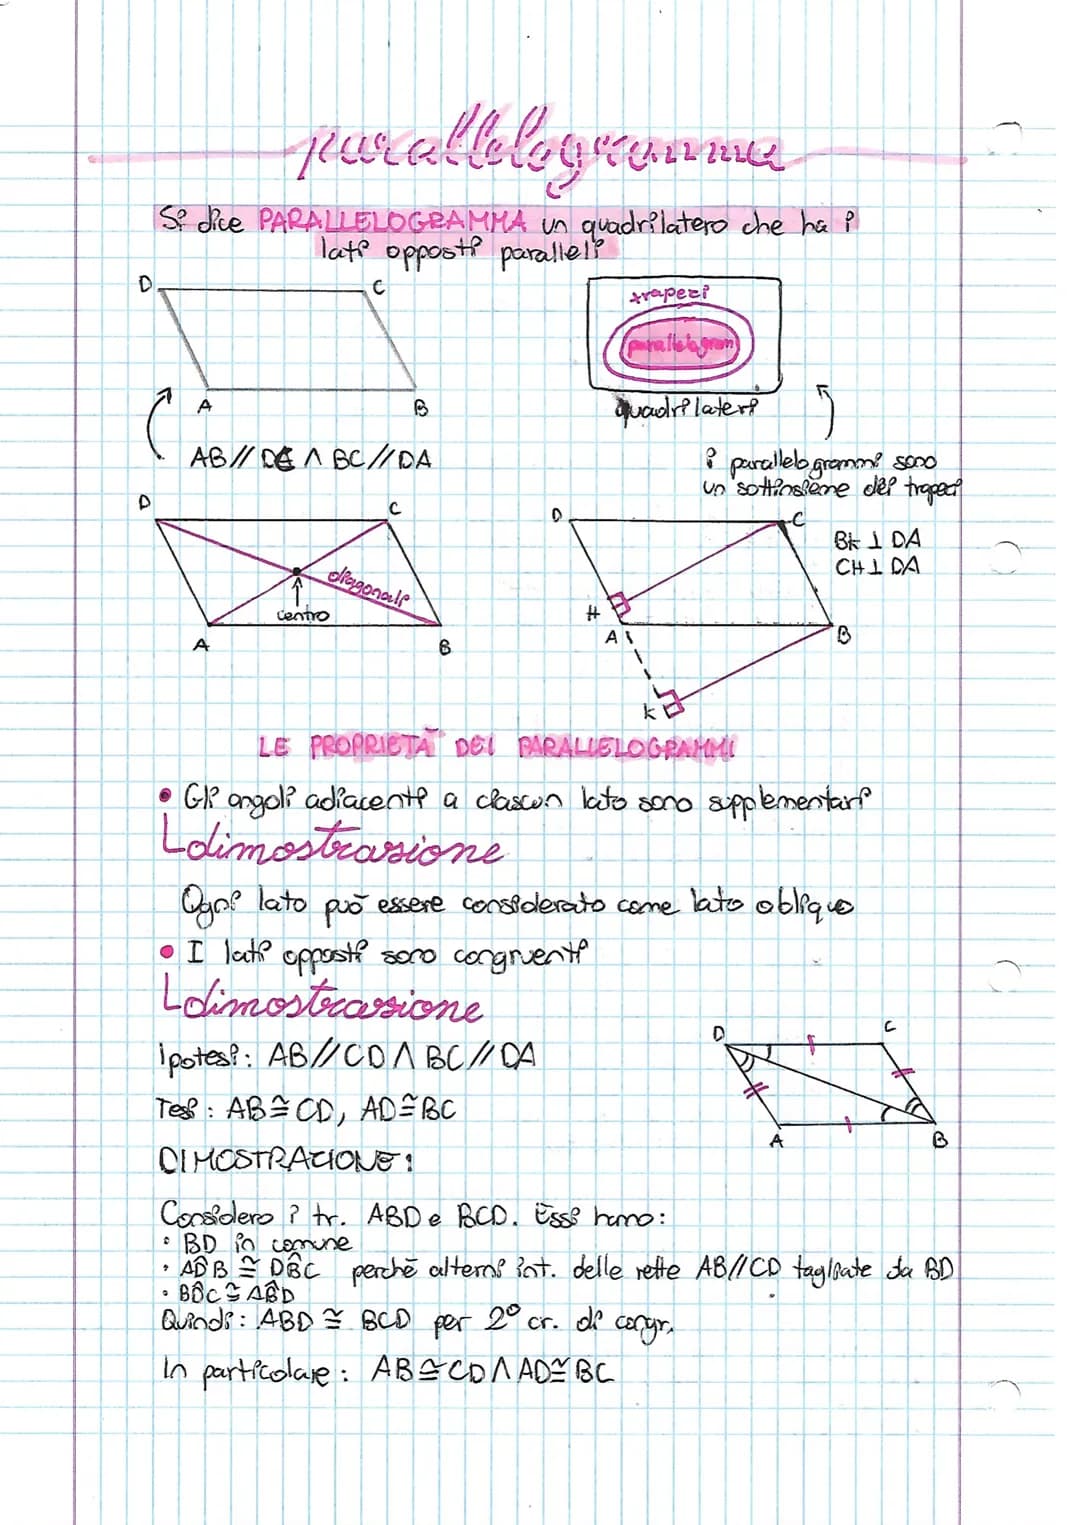 parallelogramma
Si dice PARALLELOGRAMMA un quadrilatero che ha i
lati opposti paralleli
D
C
A
B
AB // DC ∧ BC // DA
trapezi
parallelogram
quadrilateri
i parallelogrammi sono
un sottinsieme dei trapezi
D
C
diagonali
centro
A
B
D
C
BK ⊥ DA
CH ⊥ DA
H
A
B
K
LE PROPRIETÀ DEI PARALLELOGRAMMI
• Gli angoli adiacenti a ciascun lato sono supplementari
dimostrazione
Ogni lato può essere considerato come lato obliquo
• I lati opposti sono congruenti
dimostrazione
Ipotesi: AB // CD ∧ BC // DA
Tesi: AB ≅ CD, AD ≅ BC
D
C
A
B
DIMOSTRAZIONE:
Considero i tr. ABD e BCD. Essi hanno:
• BD in comune
• AD̂B ≅ DB̂C perchè alterni int. delle rette AB // CD tagliate da BD
• BD̂C ≅ AB̂D
Quindi: ABD ≅ BCD per 2° cr. di congr.
In particolare: AB ≅ CD ∧ AD ≅ BC